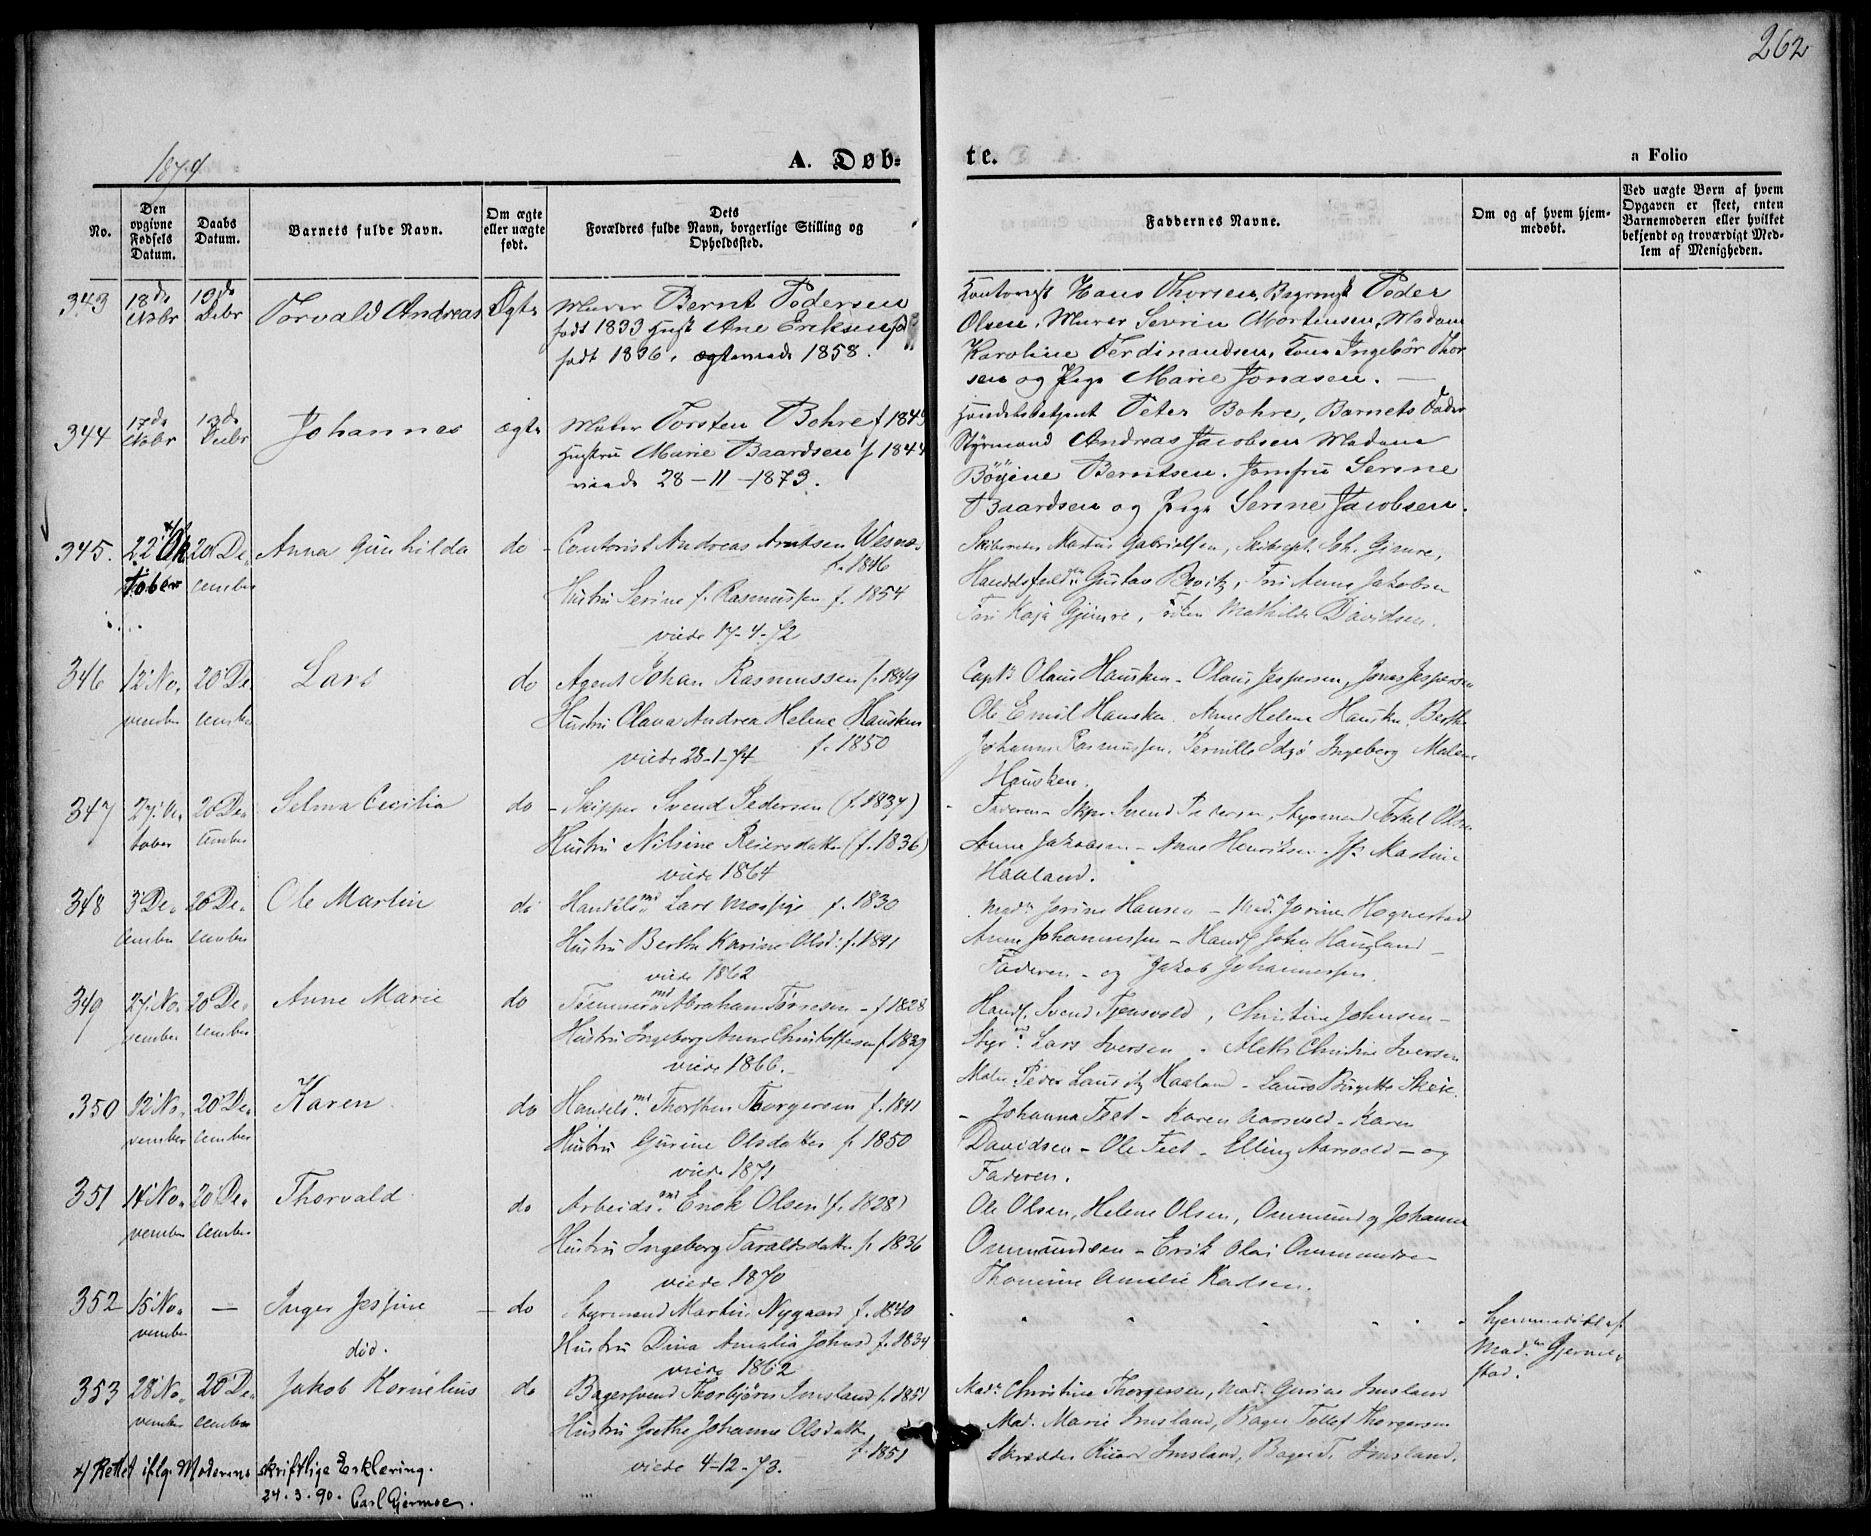 262
1874
A. Døb-
te.
a Folio
No.
Den opgivne Fødsels Datum.
Daabs Datum.
Barnets fulde Navn.
Om ægte eller uægte født.
Dets Forældres fulde Navn, borgerlige Stilling og Opholdssted.
Faddernes Navne.
Om og af hvem hjemmedøbt.
Ved uægte Børn af hvem Opgaven er skeet, enten Barnemoderen eller hvilket bekjendt og troværdigt Medlem af Menigheden.
343 18de Nobr 13de Debr Torvald Andreas Ægte Murer Bernt Pedersen
født 1833 Hust Ane Eriksen
født 1836, ægteviede 1858.
Kontorist Hans Thorsen, Peder
Olsen, Murer Sevrin Mortensen, Madam
Karoline Ferdinandsen, Kone Ingebør Thor
sen og Pige Marie Jonasen.
344 17de Nobr 13de Debr Johannes ægte Murer Torsten Bohre f 184
Hustru Marie Baardsen f 1844
viede 28-11-1873.
Handelsbetjent Peter Bohre, Barnets Fader
Styrmand Andreas Jacobsen Madam
Berntsen. Jomfru Serine
Baardsen og Pige Serine Jacobsen.
345. 22 x/ Oktober 20 December Anna Gunhilda do Contorist Andreas Arntsen Wesnes
f. 1846
Hustru Serine f. Rasmussen f. 1854
viede 17-4-72
Markus Gabrielsen, Joh. Gjmre,
Gustav Frk Anna Jakobsen
Kaja Gjemre, Mathilde Davidsen.
346 12 November 20 December Lars do Agent Johan Rasmussen f. 1849
Hustru Olava Andrea Helene Hausken
viede 28-1-74 f. 1850
Capt. Olaus Hausken - Olaus Jespersen, Jonas Jespersen
Ole Emil Hausken. Anne Helene Hausken, Berthe
Johanne Rasmussen. Pernille Idsø Ingeborg Malene
Hausken.
347 27. October 20 December Selma Cecilia do Skipper Svend Pedersen (f. 1837)
Hustru Nilsine Reiersdatter (f. 1836)
viede 1864
Faderen - Skpr Svend Pedersen, Styrmand Torkel Olsen
Anna Jakobsen - Anne Henriksen. Jf. Martine
Haaland.
348 3 December 20 December Ole Martin do Handelsmd. Lars Mossige f. 1830
Hustru Berthe Karine Olsd: f. 1841
viede 1862
Mad. Jorine Hansen - Mad. Jorine Hognestad
Anne Johannessen - Handf John Haugland -
Faderen - og Jakob Johannessen
349 27 November 20 December Anne Marie do Tømmermd Abraham Tørresen - f 1828
Hustru Ingeborg Anne Christoffersen f 1839
viede 1866.
Handf. Svend Tjensvold, Christine Johnsen -
Lars Iversen. Alethe Christine Iversen
Maler Peder Lauritz Haaland - Laura Birgitte Skeie.
350 12 November 20 December Karen do Handelsmd. Thorsten Thorgersen f. 1841
Hustru Gurine Olsdatter f. 1850
viede 1871
- Johanna Feet - Karen Aarsvold - Karen
Davidsen - Ole Feet - Elling Aarsvold - og
Faderen.
351 14 November 20 December Thorvald do Arbeidsmd. Enok Olsen (f. 1828)
Hustru Ingeborg Taraldsdatter f. 1836
viede 1870
Ole Olsen, Helene Olsen, Ommund og Johanne
Ommundsen - Erik Olai Ommundsen
Thomine Amalie Kadsen.
352 15 November - Inger Jessine - do Styrmand Martin Nygaard f. 1840
død. Hustru Dina Amalia Johnsd f. 1834
viede 1862
hjemmedøbt af
Mad. Gjerme-
stad.
353 28 November 20 December Jakob Kornelius do Bagersvend Thorbjørn Imsland f. 1851
Hustru Grethe Johanne Olsdatter
f. 1851
viede 4-12-73.
Mad. Christine Thorgersen, Mad. Gurine Imsland
Mad. Marie Imsland, Bager Tollef Thorgersen
Skrædder Imsland, Imsland.
x) Rettet iflg. Moderens skriftlige Erklæring.
24.3.90. Carl Gjermoe.